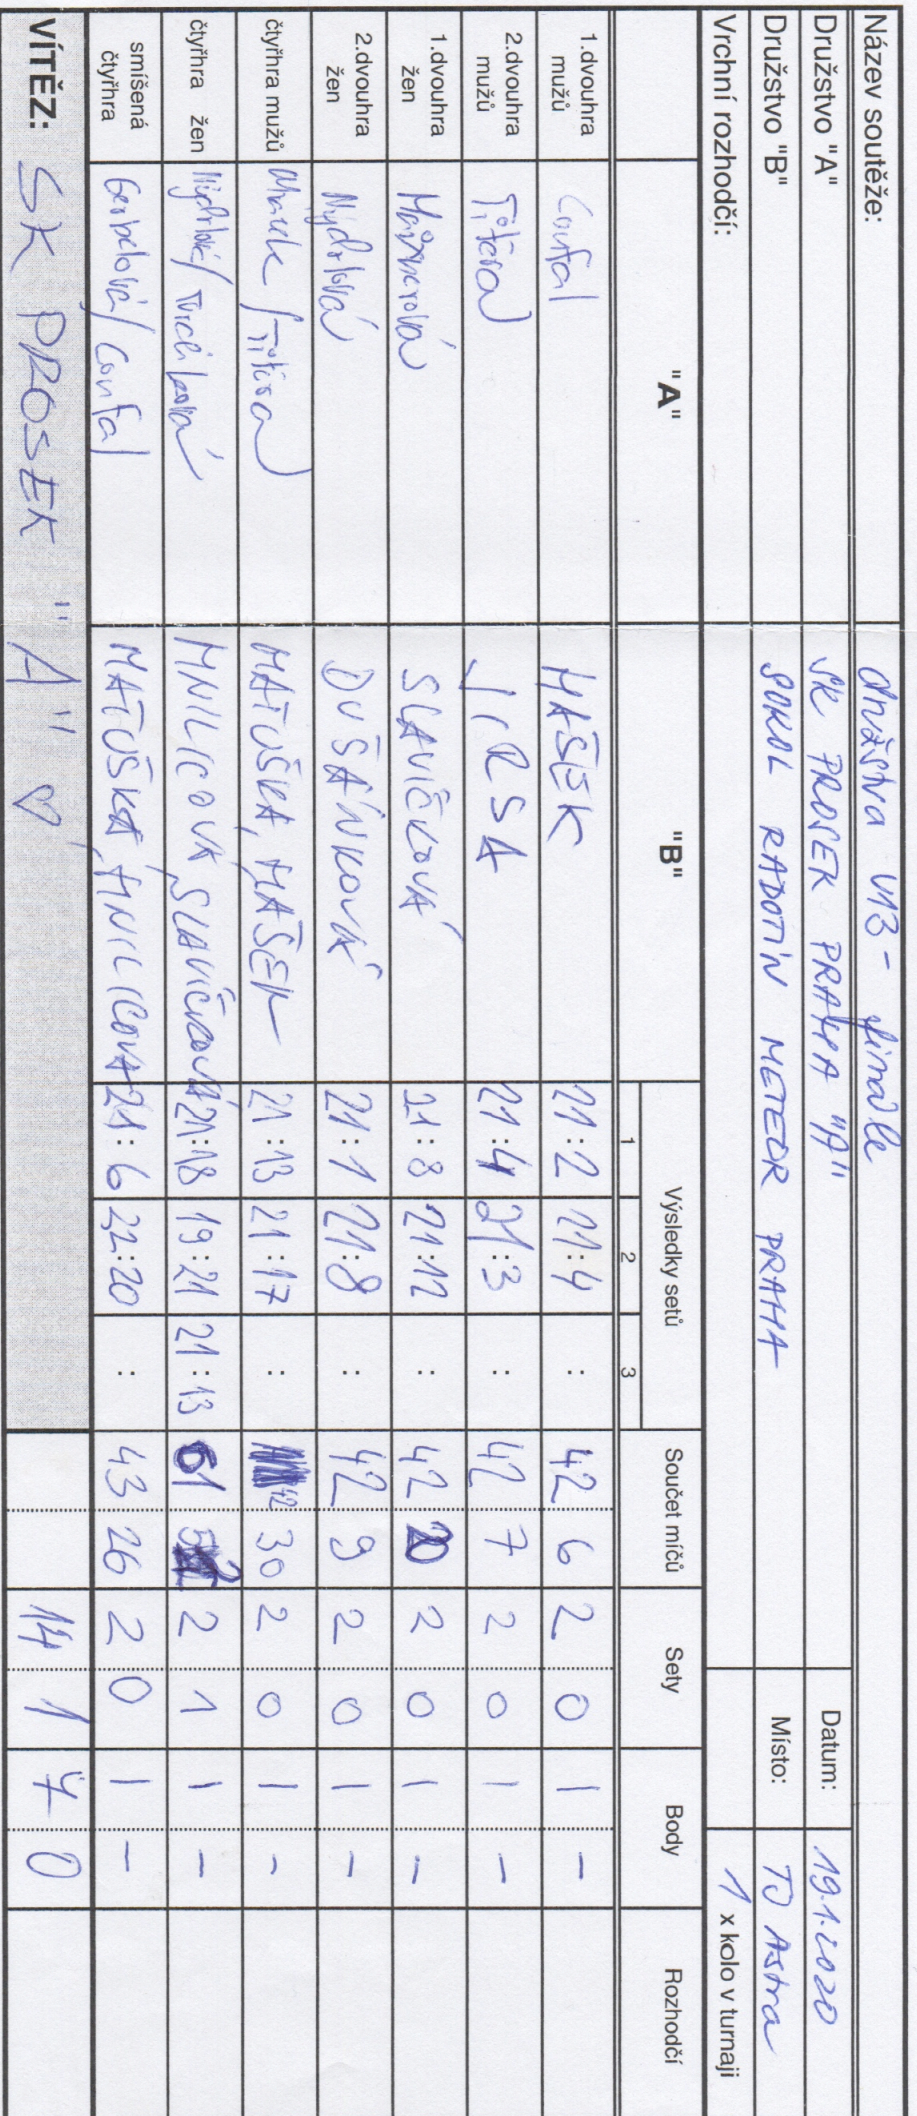 Název soutěže: družstva U13 - finále
Družstvo "A" SK PROSEK PRAHA "A" Datum: 19.1.2020
Družstvo "B" SOKOL RADOTÍN METEOR PRAHA Místo: TJ Astra
Vrchní rozhodčí: 1 x kolo v turnaji
"A" "B" Výsledky setů Součet míčů Sety Body Rozhodčí
1 2 3
1.dvouhra mužů Coufal MAŠEK 21:2 21:4 : 42 6 2 0 1 -
2.dvouhra mužů Titěra JIRSA 21:4 21:3 : 42 7 2 0 1 -
1.dvouhra žen SLAVÍČKOVÁ 21:8 21:12 : 42 20 2 0 1 -
2.dvouhra žen DUŠÁNKOVÁ 21:1 21:8 : 42 9 2 0 1 -
čtyřhra mužů / Titěra MATUŠKA, MAŠEK 21:13 21:17 : 42 30 2 0 1 -
čtyřhra žen MNILICOVÁ, SLAVÍČKOVÁ 21:18 19:21 21:13 61 52 2 1 1 -
smíšená čtyřhra / Coufal MATUŠKA, MNILICOVÁ 21:6 22:20 : 43 26 2 0 1 -
VÍTĚZ: SK PROSEK "A" ♡ 14 1 7 0